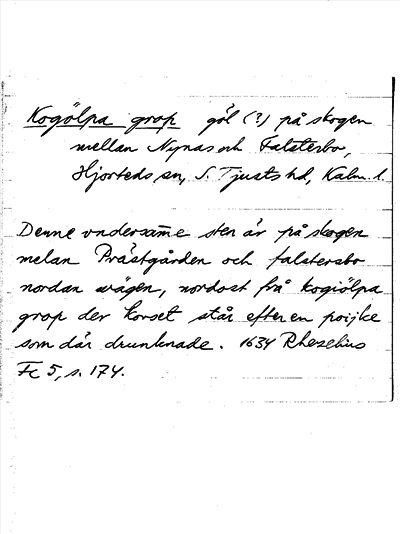 Kogölpa grop göl (?) på skogen
mellan Nynäs och Falsterbo,
Hjorteds sn, S. Tjusts hd, Kalm. l.
Denne vndersam̅e sten är på skogen
melan Prästgården och falstersbo
nordan wägen, nordost frå kogiölpa
grop der korset står efter en poijke
som där drunknade. 1634 Rhezelius
Fc 5, s. 174.